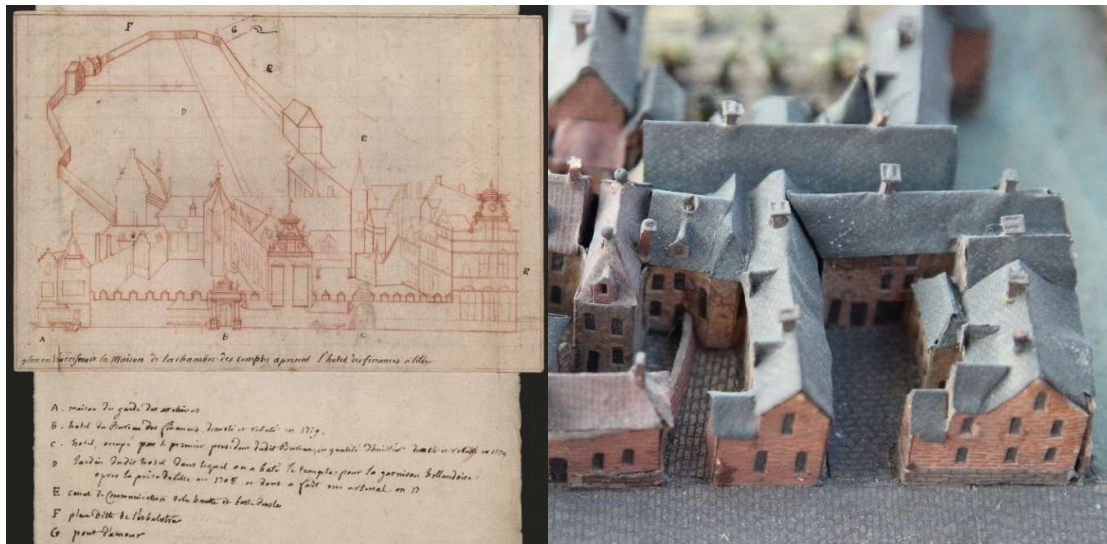 F
G
E
D
E
E
A
B
C
la Maison de la chambre des comptes a present l'hotel des finances a lille
A. maison du garde des archives
B. hotel du Bureau des finances, demoli et rebati en 1779.
C. hotel, occupé par le premier president dudit Bureau, en qualité
D Jardin dudit hotel dans lequel on a bati le temple pour la garnison hollandoise
après la prise de lille en 1708 et dont a fait un arsenal en 17
E canal de Communication de la haute et basse deule
F place ditte de l'arbalestre
G pont d'amour